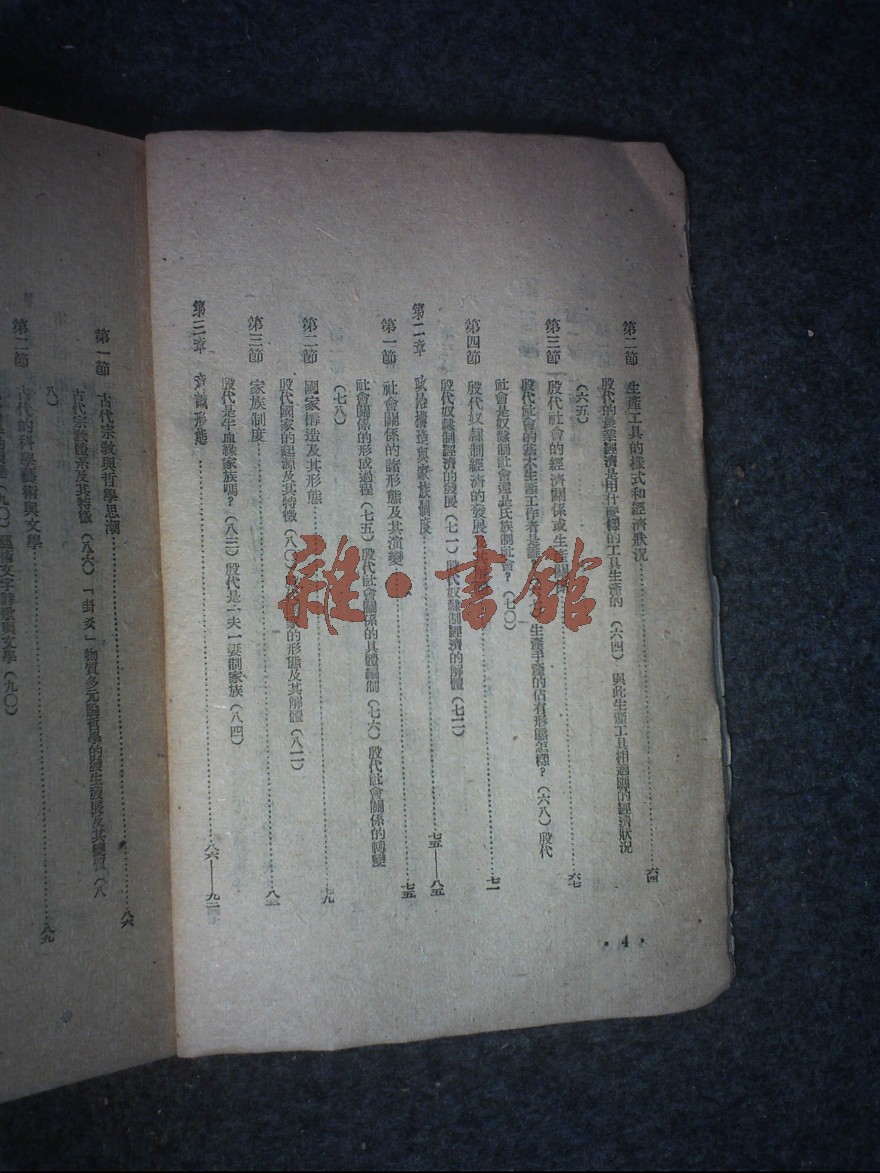 第二節 生產工具的樣式和經濟狀況……六四
殷代的農業經濟是用什麼樣的工具生產的(六四)與此生產工具相適應的經濟狀況
(六五)
第三節 殷代社會的經濟關係或生產關係……六七
殷代社會的基本生產工作者是誰 生產手段的佔有形態怎樣?(六八)殷代
社會是奴隸制社會還是氏族制社會?(七〇)
第四節 殷代奴隸制經濟的發展……七一
殷代奴隸制經濟的發展(七一)殷代奴隸制經濟的解體(七二)
第二章 政治構造與家族制度……七五——八五
第一節 社會關係的諸形態及其演變……七五
社會關係的形成過程(七五)殷代社會關係的具體編制(七六)殷代社會關係的轉變
(七八)
第二節 國家構造及其形態……七九
殷代國家的起源及其特徵(八〇)的形態及其解體(八二)
第三節 家族制度……八三
殷代是半血緣家族嗎?(八三)殷代是一夫一妻制家族(八四)
第三章 意識形態……八六——九二
· 4 ·
第一節 古代宗教與哲學思潮……八六
古代宗教體系及其特徵(八六)「卦爻」物質多元論哲學的發生發展及其變質(八
八)
第二節 古代的科學藝術與文學……八九
(九〇)藝術文字詩歌與文學(九〇)
雜·書館